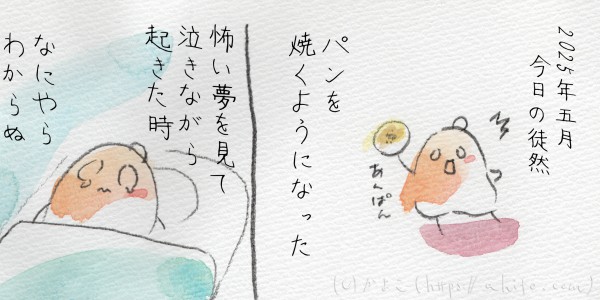 2025年五月
今日の徒然
パンを
焼くようになった
あんぱん
怖い夢を見て
泣きながら
起きた時
なにやら
わからぬ